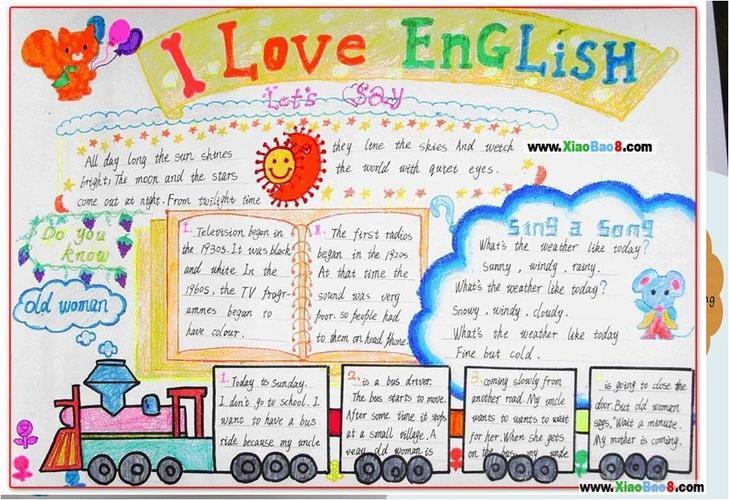 I Love EnGLiSH
Let's Say
www.XiaoBao8.com
All day long the sun shines
bright; The moon and the stars
come out at night. From twilight time
they line the skies And wetch
the world with quiet eyes.
Do you
know
old woman
1. Television began in
the 1930s. It was black
and white In the
1960s, the TV progr-
ammes began to
have colour.
The first radios
began in the 1920s
At that time the
sound was very
poor. so people had
to them on head phone
Sing a Song
What's the weather like today?
Sunny , windy , rainy.
What's the weather like today?
Snowy , windy , cloudy.
What's the weather like today
Fine but cold .
1. Today to Sunday.
I don't go to school. I
want to have a bus
ride because my uncle
2. is a bus driver.
The bus starts to move.
After some time it stops
at a small village. A
very old woman is
3. coming slowly from
another road. My uncle
wants to wants to wait
for her. When she gets
on the bus, my uncle
is going to close the
door. But old woman
says, "Wait a minute.
My mother is coming.
www.XiaoBao8.com